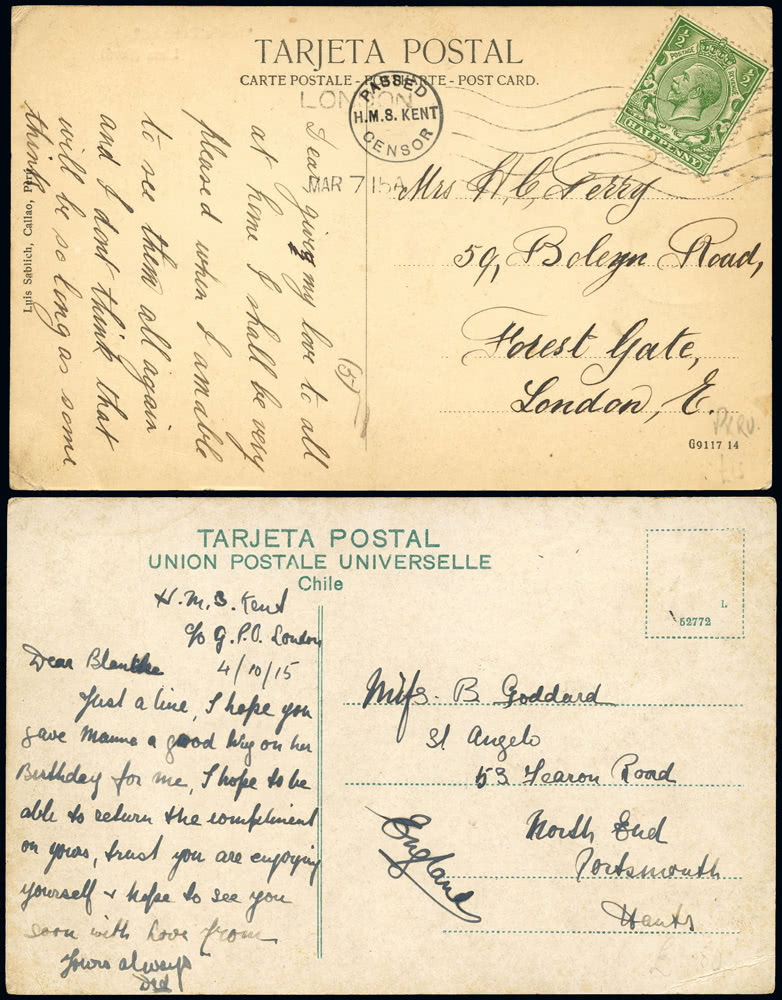 TARJETA POSTAL
CARTE POSTALE - POSTKARTE - POST CARD.
LONDON
MAR 7 15
PASSED
H.M.S. KENT
CENSOR
½ ½
POSTAGE REVENUE
HALFPENNY
(5)
Dear, giving my love to all
at home I shall be very
pleased when I am able
to see them all again
and I dont think that
will be so long as some
think
Luis Sablich, Callao, Perú.
Mrs H. C. Terry
59, Boleyn Road,
Forest Gate,
London, E.
PERU.
G9117 14
TARJETA POSTAL
UNION POSTALE UNIVERSELLE
Chile
L
52772
H.M.S. Kent
c/o G.P.O. London
4/10/15
Dear Blanche
Just a line, I hope you
gave Mamma a good Wig on her
Birthday for me, I hope to be
able to return the compliment
on yours, trust you are enjoying
yourself & hope to see you
soon with Love from
Yours always
Miss. B Goddard
St Angelo
53 Fearon Road
North End
Portsmouth
Hants
England